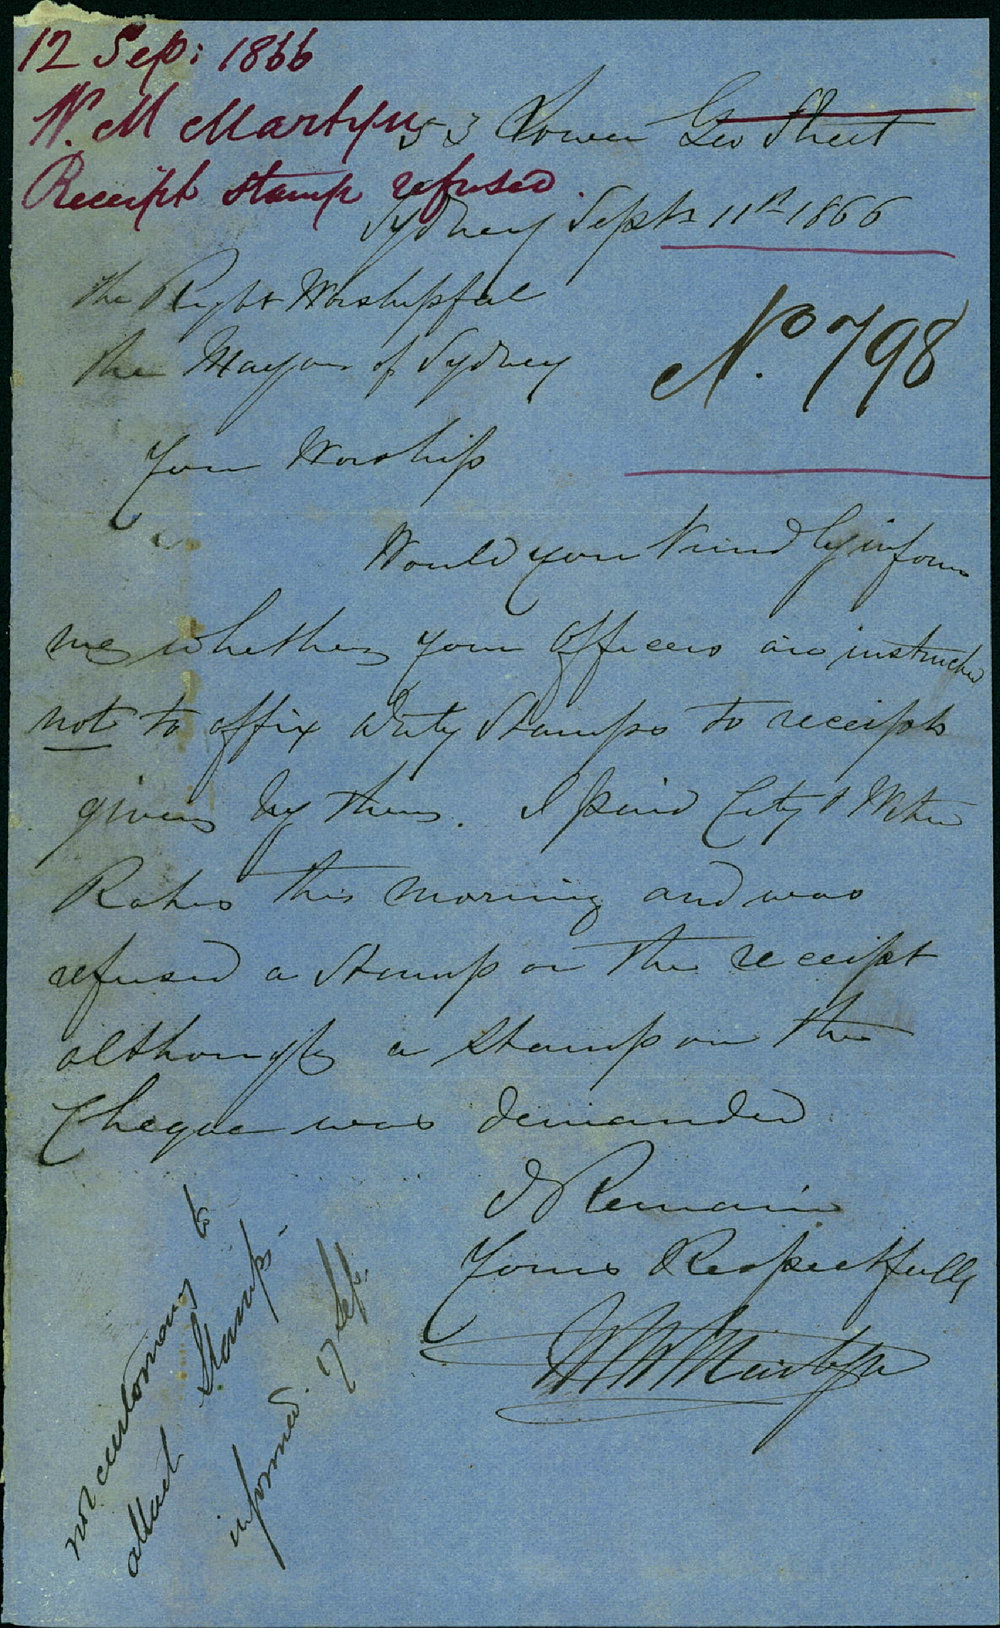 12 Sep: 1866
W. M Martyn
Receipt stamp refused.
53 Lower Geo Street
Sydney Septr 11th 1866
The Right Worshipful
The Mayor of Sydney
No. 798
Your Worship
Would you kindly inform
me whether your Officers are instructed
not to affix Duty Stamps to receipts
given by them. I paid City & Water
Rates this morning and was
refused a Stamp on the receipt
although a Stamp on the
Cheque was demanded
I Remain
Yours Respectfully
W M Martyn
not customary to
attach Stamps.
informed 17 Sep.